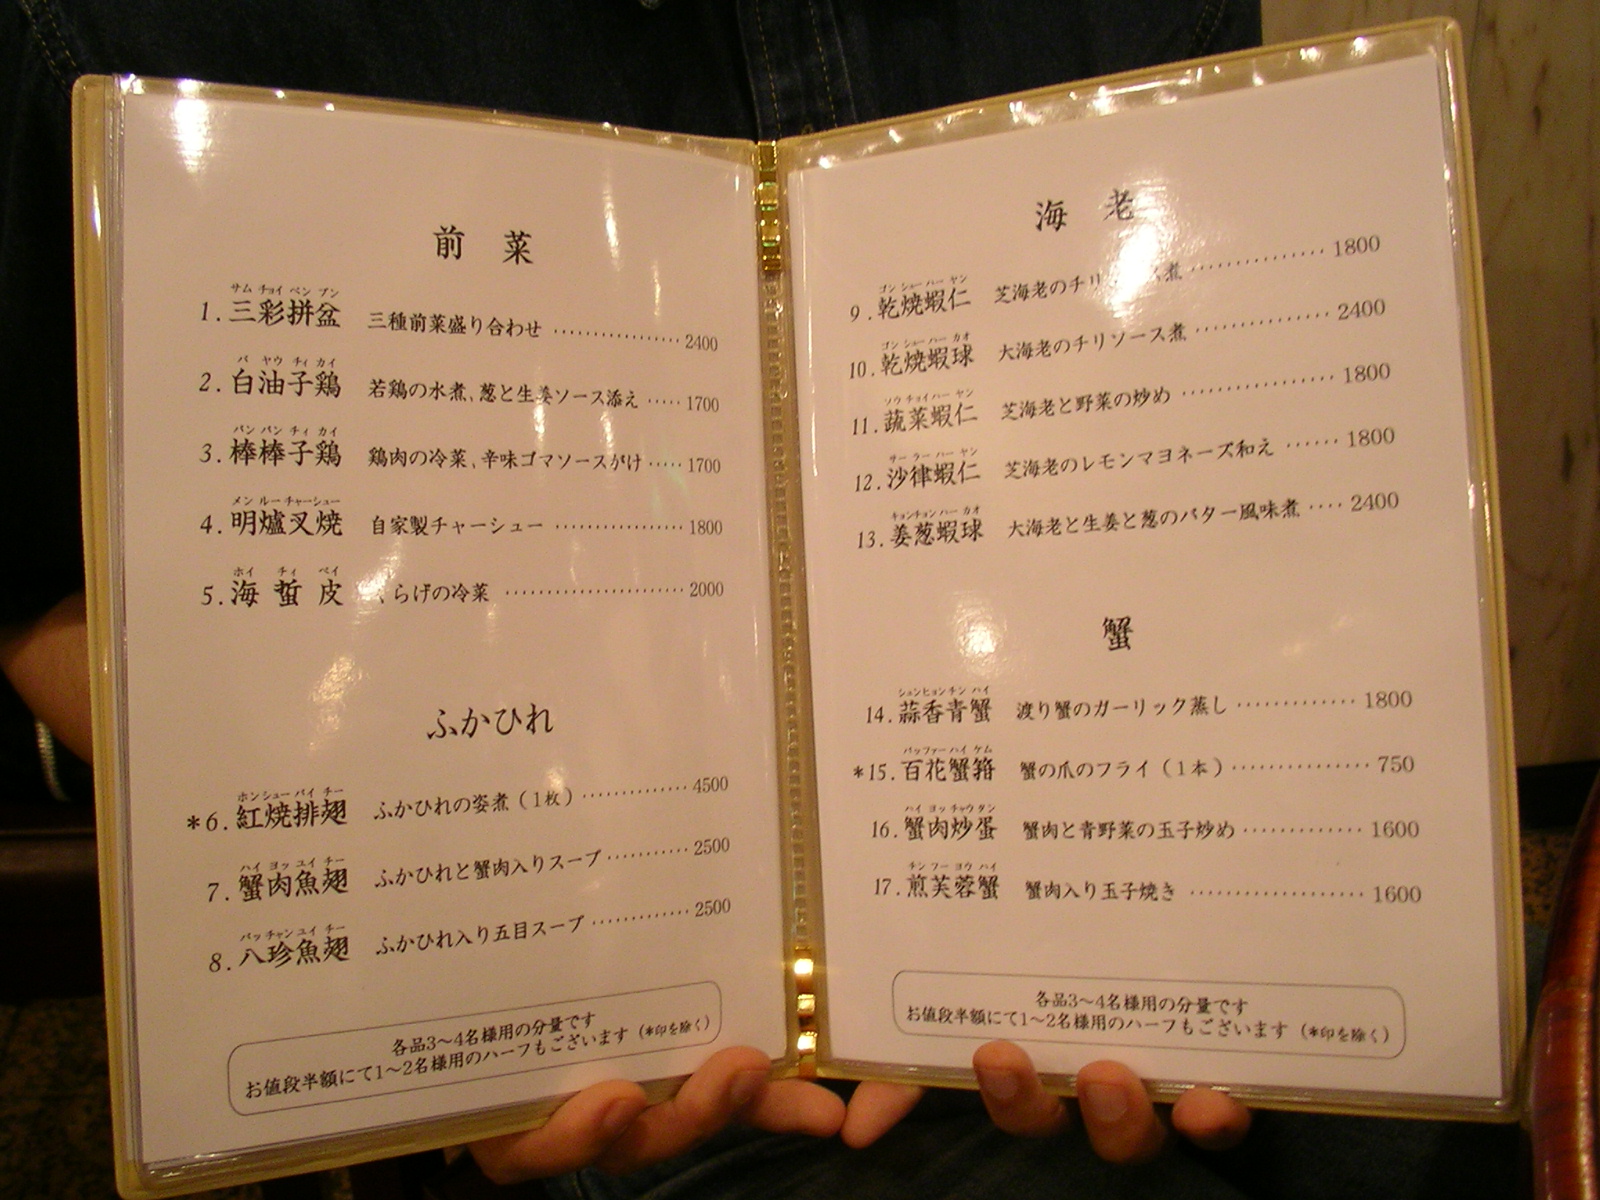 前菜
サム チョイ ペン プン
1. 三彩拼盆 三種前菜盛り合わせ ………… 2400
パ ヤウ チィ カイ
2. 白油子鶏 若鶏の水煮、葱と生姜ソース添え …… 1700
パン パン チィ カイ
3. 棒棒子鶏 鶏肉の冷菜、辛味ゴマソースがけ …… 1700
メン ルー チャーシュー
4. 明爐叉焼 自家製チャーシュー ………… 1800
ホイ チィ ペイ
5. 海蜇皮 くらげの冷菜 ………… 2000
ふかひれ
ホンシュー パイ チー
*6. 紅焼排翅 ふかひれの姿煮(1枚) ………… 4500
ハイ ヨッ ユイ チー
7. 蟹肉魚翅 ふかひれと蟹肉入りスープ ………… 2500
パッチャンユイ チー
8. 八珍魚翅 ふかひれ入り五目スープ ………… 2500
各品3〜4名様用の分量です
お値段半額にて1〜2名様用のハーフもございます (*印を除く)
海老
ゴン シュー ハー ヤン
9. 乾焼蝦仁 芝海老のチリ 煮 ………… 1800
ゴン シュー ハー カオ
10. 乾焼蝦球 大海老のチリソース煮 ………… 2400
ソウ チョイ ハー ヤン
11. 蔬菜蝦仁 芝海老と野菜の炒め ………… 1800
サー ラー ハー ヤン
12. 沙律蝦仁 芝海老のレモンマヨネーズ和え …… 1800
キョンチョン ハー カオ
13. 姜葱蝦球 大海老と生姜と葱のバター風味煮 …… 2400
蟹
シュンヒョンチン ハイ
14. 蒜香青蟹 渡り蟹のガーリック蒸し ………… 1800
パッファー ハイ ケム
*15. 百花蟹箝 蟹の爪のフライ(1本) ………… 750
ハイ ヨッ チャウ タン
16. 蟹肉炒蛋 蟹肉と青野菜の玉子炒め ………… 1600
チン フー ヨウ ハイ
17. 煎芙蓉蟹 蟹肉入り玉子焼き ………… 1600
各品3〜4名様用の分量です
お値段半額にて1〜2名様用のハーフもございます (*印を除く)